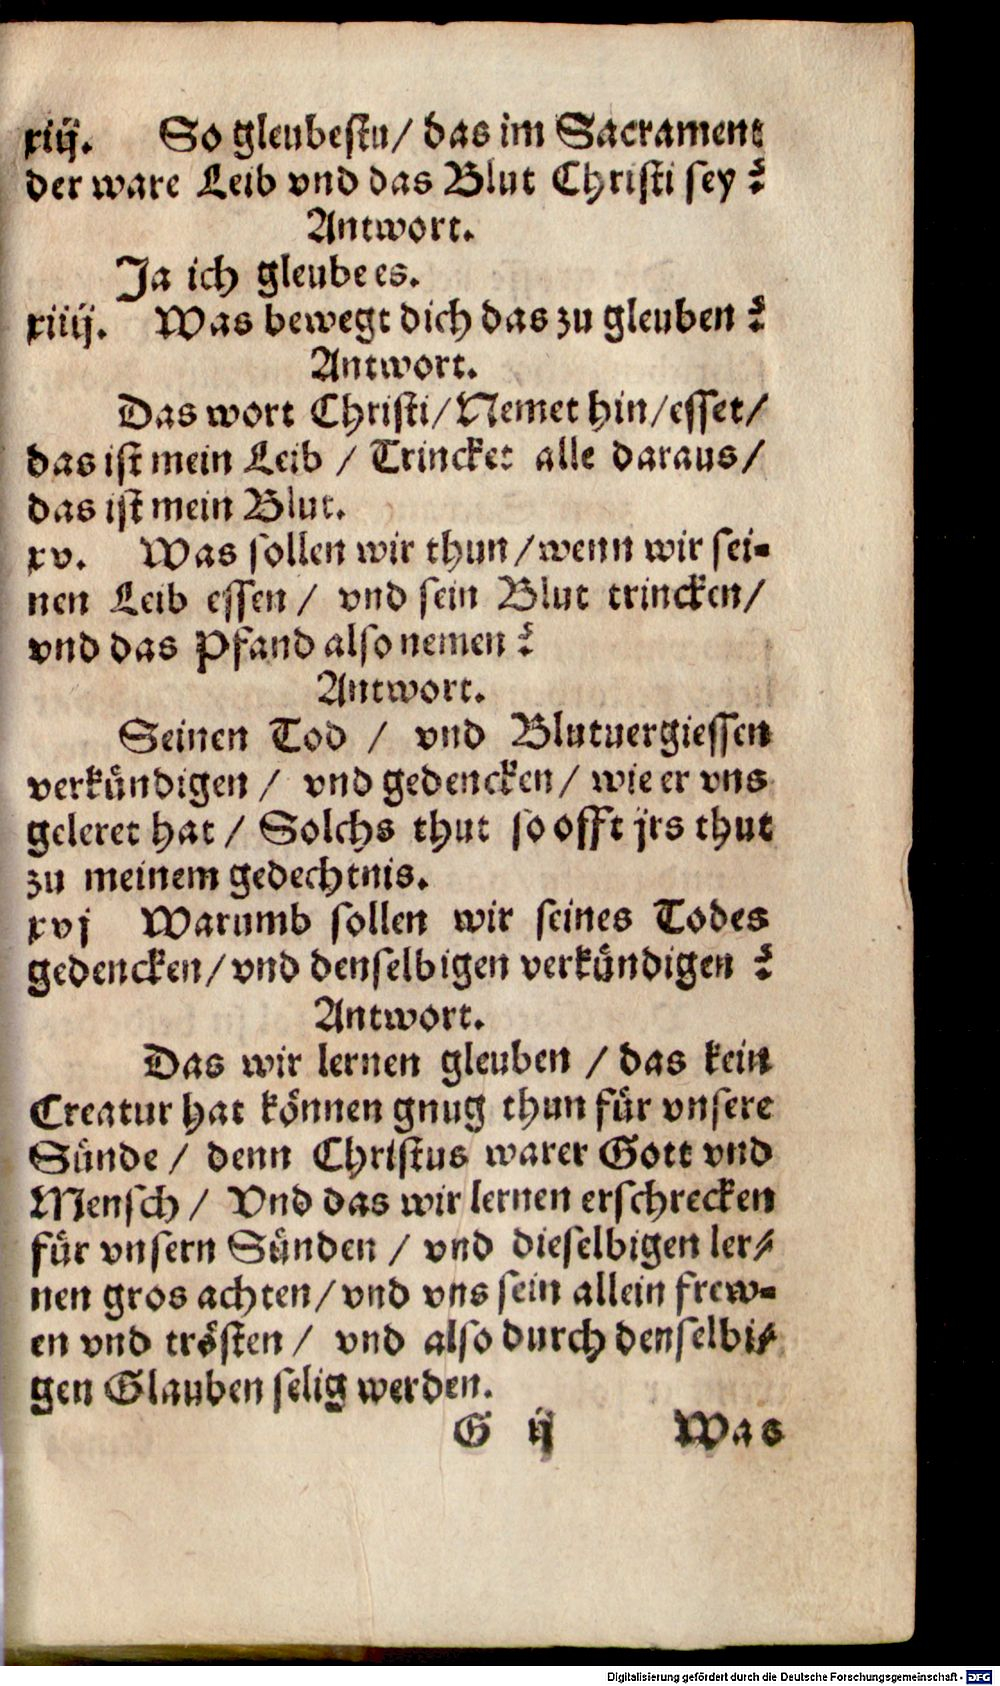 xiij. So gleubestu / das im Sacrament
der ware Leib vnd das Blut Christi sey?
Antwort.
Ja ich gleube es.
xiiij. Was bewegt dich das zu gleuben?
Antwort.
Das wort Christi / Nemet hin / esset /
das ist mein Leib / Trincket alle daraus /
das ist mein Blut.
xv. Was sollen wir thun / wenn wir sei-
nen Leib essen / vnd sein Blut trincken /
vnd das Pfand also nemen?
Antwort.
Seinen Tod / vnd Blutuergiessen
verkündigen / vnd gedencken / wie er vns
geleret hat / Solchs thut so offt jrs thut
zu meinem gedechtnis.
xvj Warumb sollen wir seines Todes
gedencken / vnd denselbigen verkündigen?
Antwort.
Das wir lernen gleuben / das kein
Creatur hat können gnug thun für vnsere
Sünde / denn Christus warer Gott vnd
Mensch / Vnd das wir lernen erschrecken
für vnsern Sünden / vnd dieselbigen ler-
nen gros achten / vnd vns sein allein frew-
en vnd trösten / vnd also durch denselbi-
gen Glauben selig werden.
G ij Was
Digitalisierung gefördert durch die Deutsche Forschungsgemeinschaft - DFG